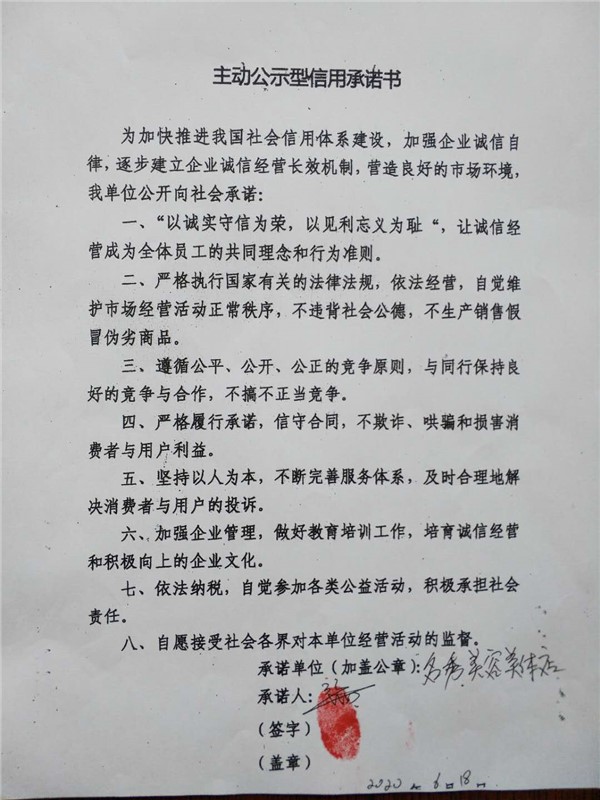 主动公示型信用承诺书
为加快推进我国社会信用体系建设，加强企业诚信自
律，逐步建立企业诚信经营长效机制，营造良好的市场环境，
我单位公开向社会承诺：
一、“以诚实守信为荣，以见利志义为耻“，让诚信经
营成为全体员工的共同理念和行为准则。
二、严格执行国家有关的法律法规，依法经营，自觉维
护市场经营活动正常秩序，不违背社会公德，不生产销售假
冒伪劣商品。
三、遵循公平、公开、公正的竞争原则，与同行保持良
好的竞争与合作，不搞不正当竞争。
四、严格履行承诺，信守合同，不欺诈、哄骗和损害消
费者与用户利益。
五、坚持以人为本，不断完善服务体系，及时合理地解
决消费者与用户的投诉。
六、加强企业管理，做好教育培训工作，培育诚信经营
和积极向上的企业文化。
七、依法纳税，自觉参加各类公益活动，积极承担社会
责任。
八、自愿接受社会各界对本单位经营活动的监督。
承诺单位（加盖公章）：名秀美容美体店
承诺人：
（签字）
（盖章）
2020年6月18日